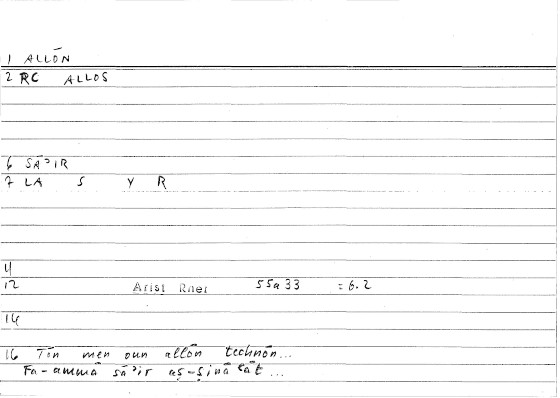 1 ALLŌN
2 RC ALLOS
6 SĀʾIR
7 LA S Y R
11
12 Arist Rher 55a33 =6.2
14
16 Tōn men oun allōn technōn...
Fa-ammā sāʾir aṣ-ṣināʿāt...